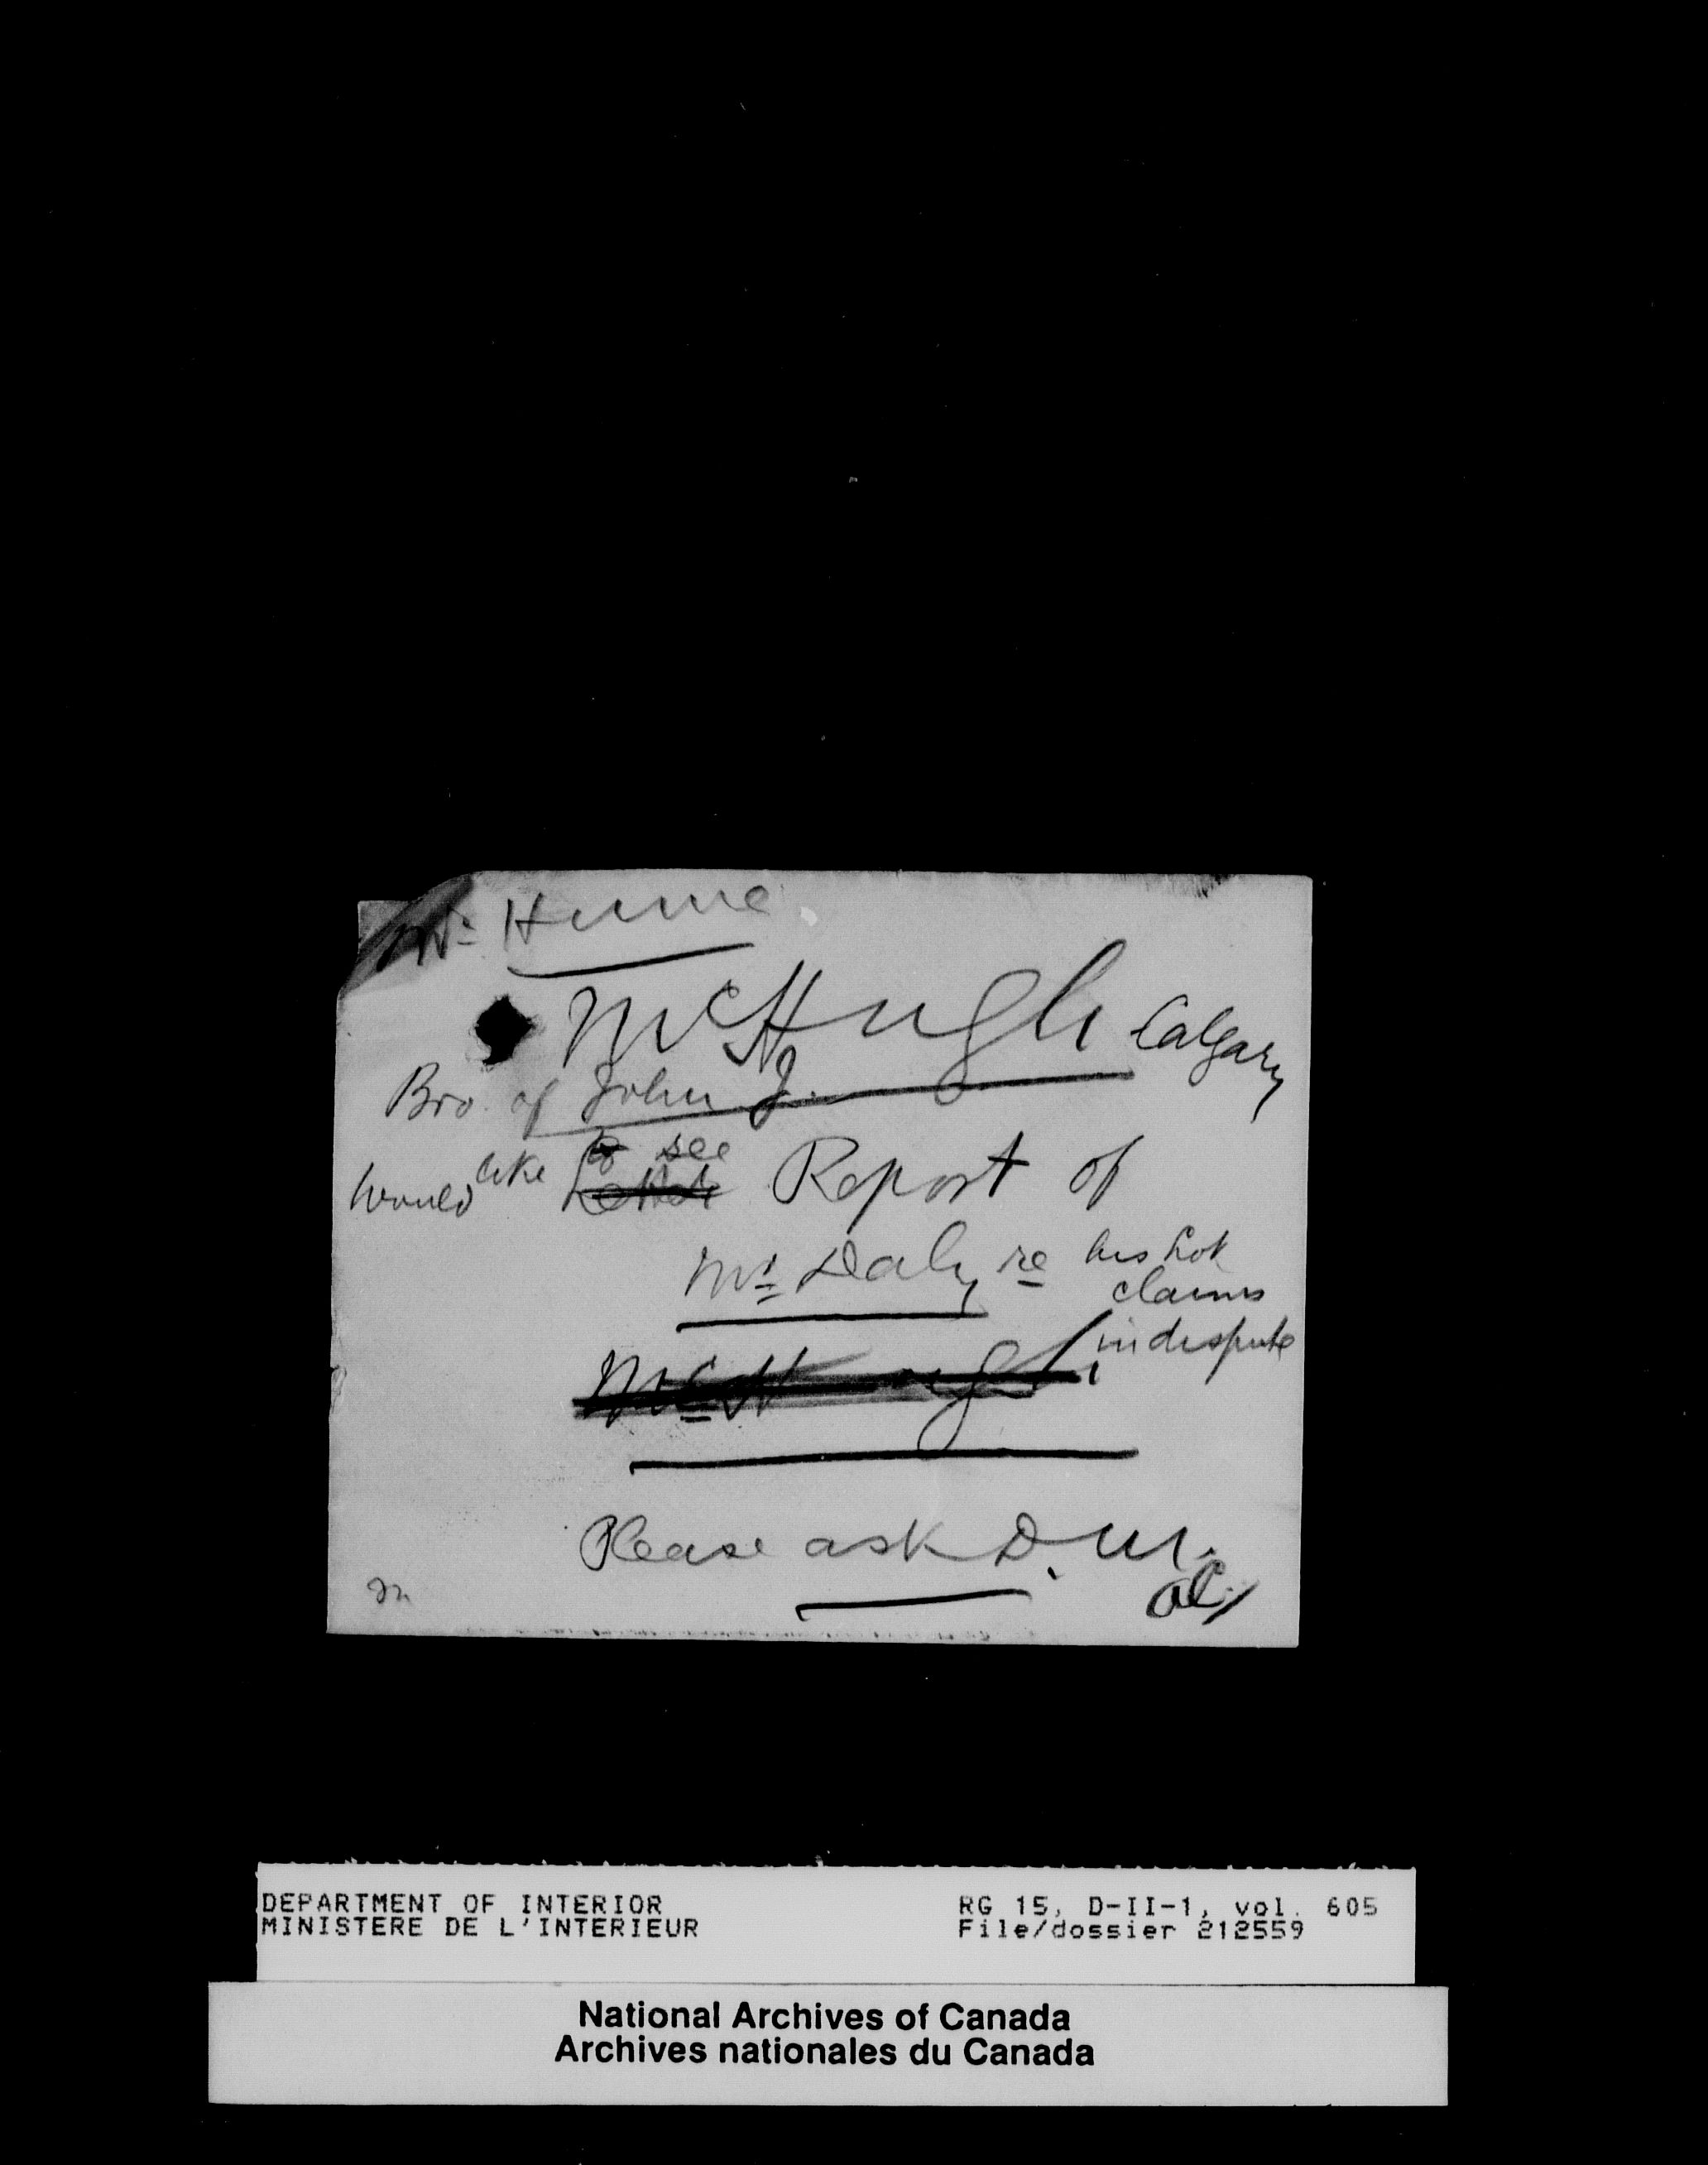 Mr. Hume
McHugh Calgary
Bro. of John J.
to see
Would like Letter Report of
Mr. Daly re his Lot
claims
in dispute
McHugh
Please ask D. M.
DEPARTMENT OF INTERIOR RG 15, D-II-1, vol. 605
MINISTERE DE L'INTERIEUR File/dossier 212559
National Archives of Canada
Archives nationales du Canada